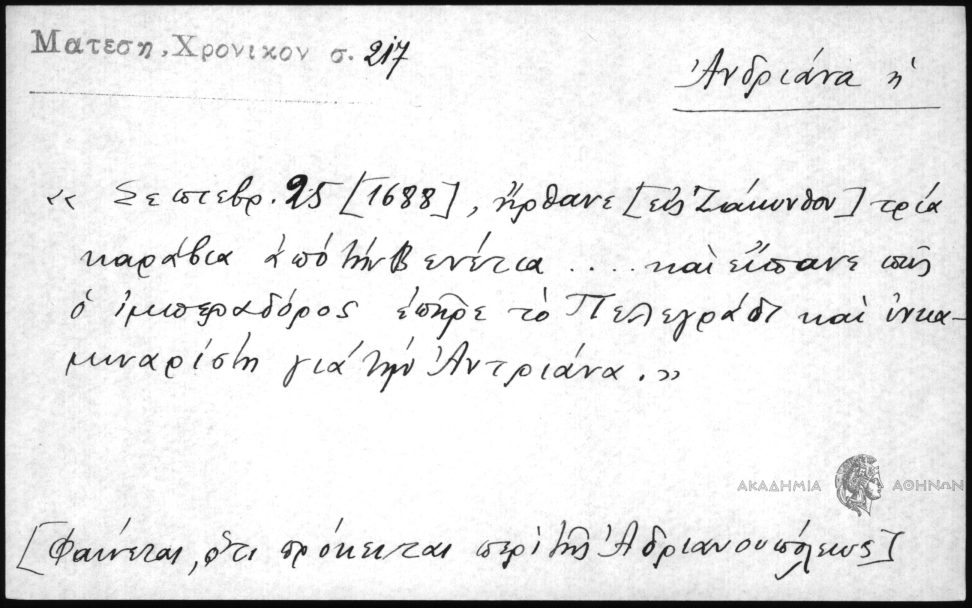 Ματεση, Χρονικον σ. 217
Ἀνδριάνα ἡ
« Σεπτεβρ. 25 [1688], ἤρθανε [εἰς Ζάκυνθον] τρία
καράβια ἀπό τήν Βενέτια .... καὶ εἴπανε πῶς
ὁ ἰμπεραδόρος ἐπῆρε τὸ Πελεγράδι καὶ ἰνκα-
μιναρίστη γιά τήν Ἀντριάνα. »
ΑΚΑΔΗΜΙΑ ΑΘΗΝΩΝ
[Φαίνεται, ὅτι πρόκειται περί τῆς Ἀδριανουπόλεως]